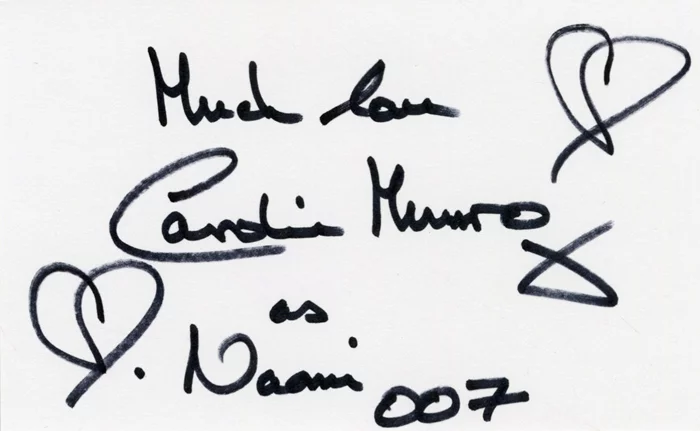 Much love
Caroline Munro
x
as
Naomi 007